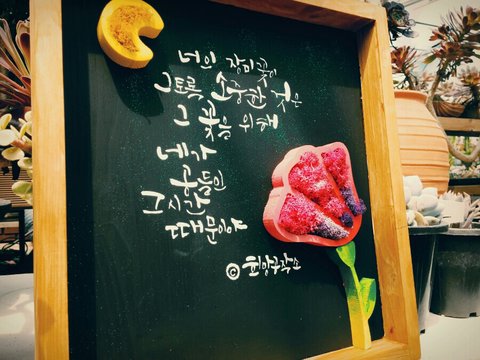 너의 장미꽃이
그토록 소중한 것은
그 꽃을 위해
네가
공들인
그시간
때문이야